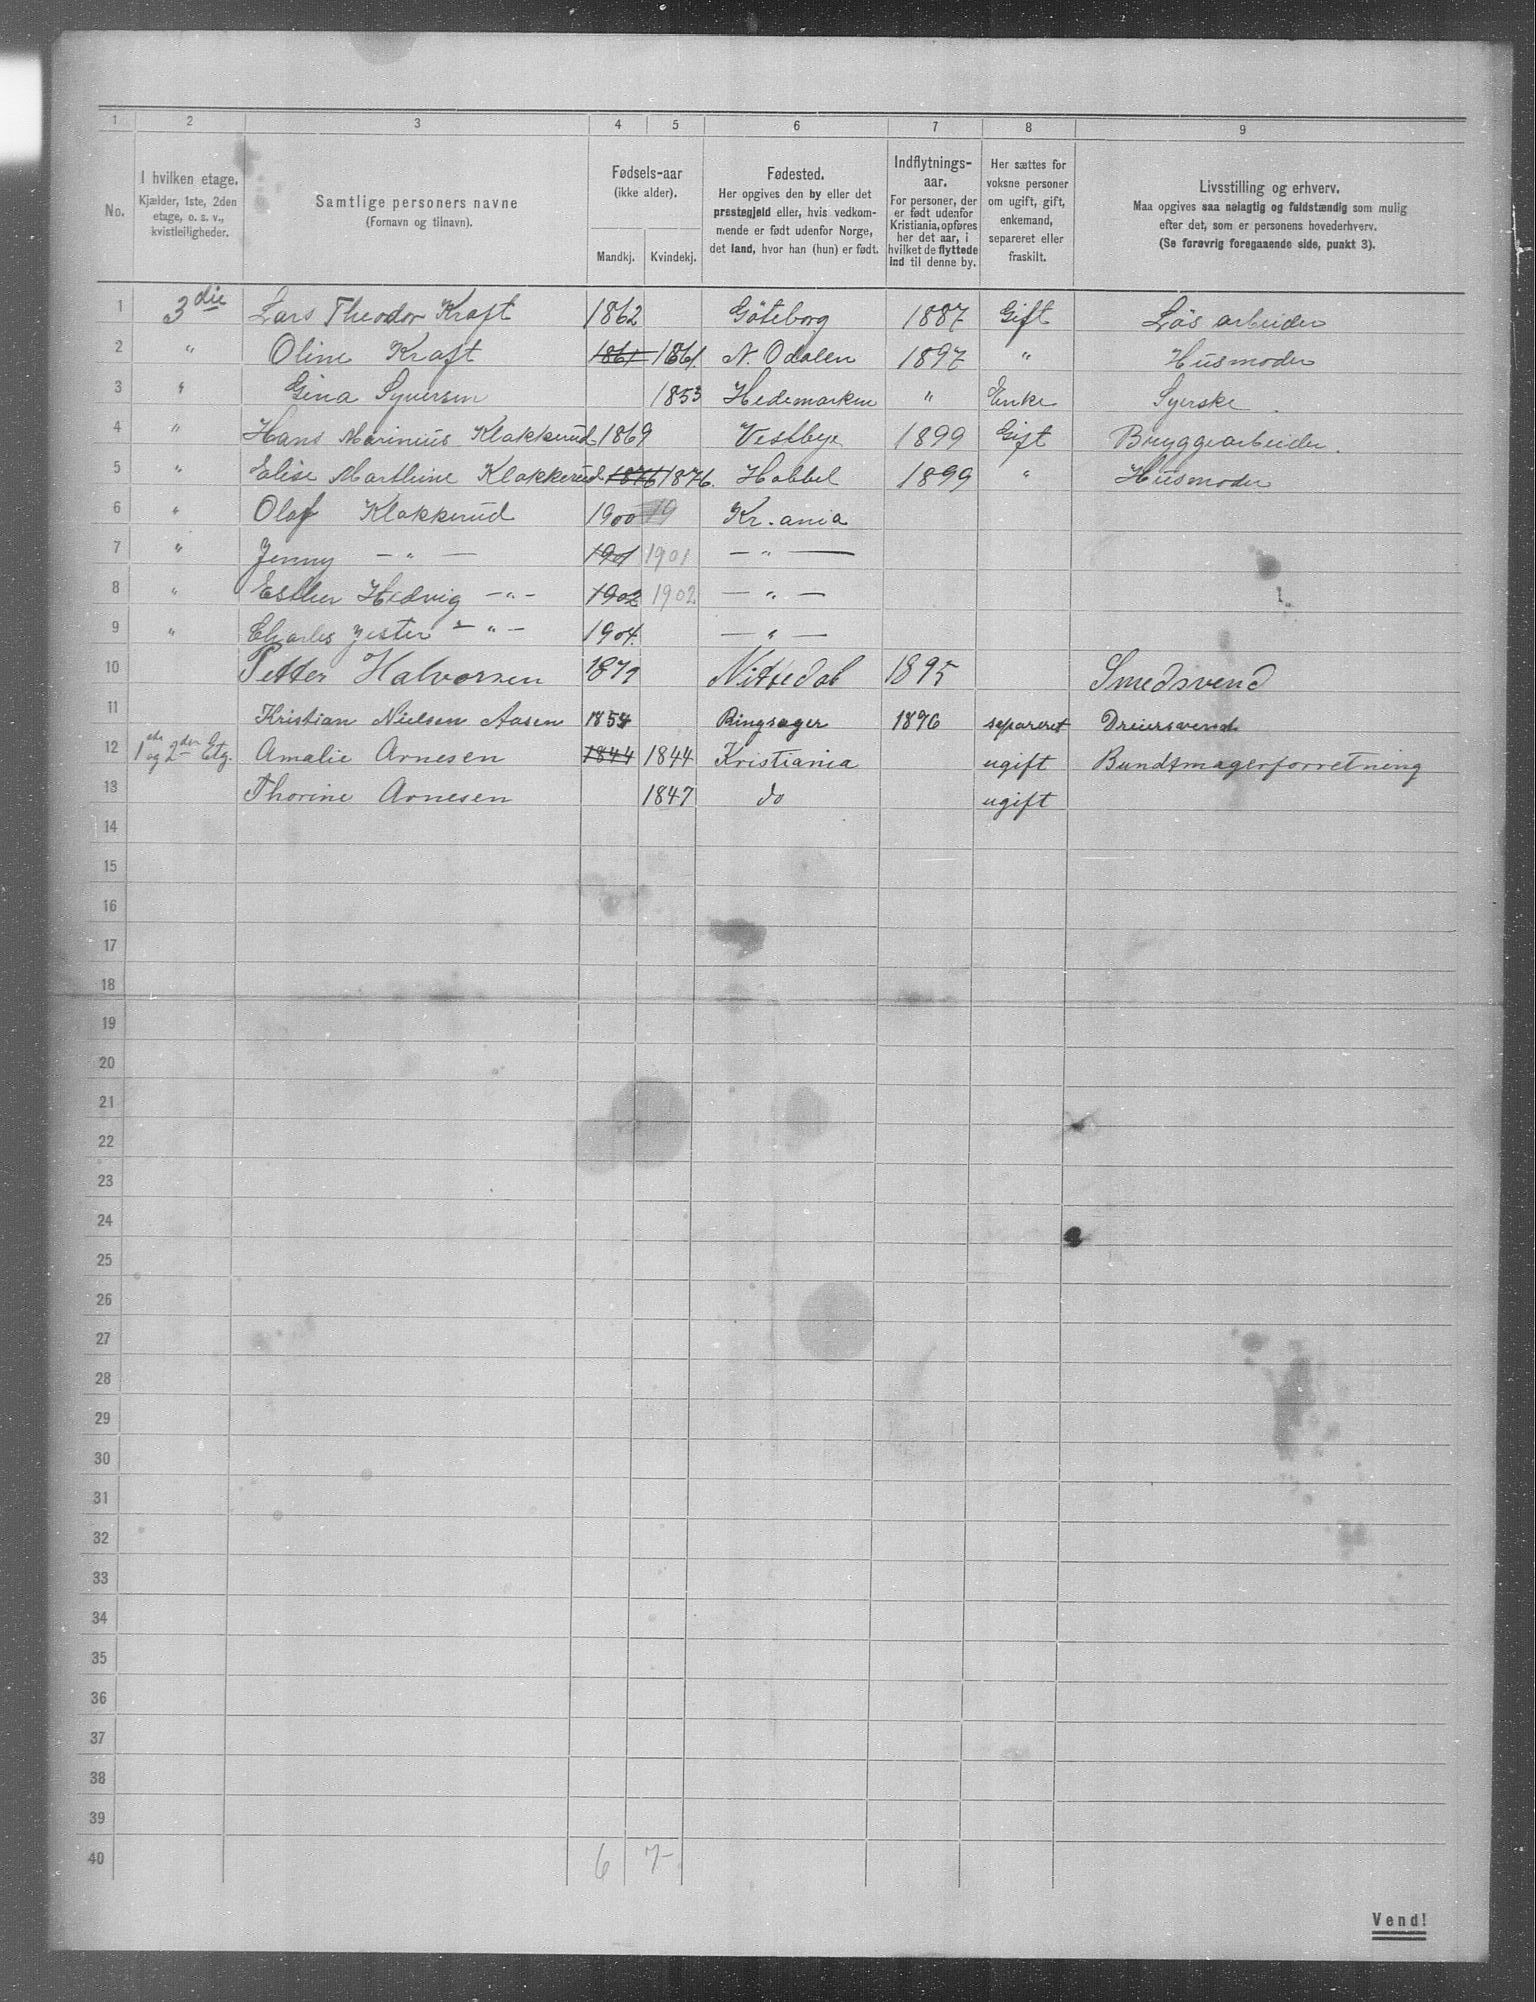 1 2 3 4 5 6 7 8 9
No.
I hvilken etage.
Kjælder, 1ste, 2den
etage, o. s. v.,
kvistleiligheder.
Samtlige personers navne
(Fornavn og tilnavn).
Fødsels-aar
(ikke alder).
Mandkj. Kvindekj.
Fødested.
Her opgives den by eller det
præstegjeld eller, hvis vedkom-
mende er født udenfor Norge,
det land, hvor han (hun) er født.
Indflytnings-
aar.
For personer, der
er født udenfor
Kristiania, opføres
her det aar, i
hvilket de flyttede
ind til denne by.
Her sættes for
voksne personer
om ugift, gift,
enkemand,
separeret eller
fraskilt.
Livsstilling og erhverv.
Maa opgives saa nøiagtig og fuldstændig som mulig
efter det, som er personens hovederhverv.
(Se forøvrig foregaaende side, punkt 3).
1 3die Lars Theodor Kraft 1862 Göteborg 1887 Gift Løs arbeider
2 " Oline Kraft 1861 1861. N. Odalen 1897 " Husmoder
3 " Gina Syversen 1853 Hedemarken " Enke Syerske.
4 " Hans Marinius Klakkerud 1869 Vestbye 1899 Gift Bryggearbeider.
5 " Elise Marthine Klakkerud 1876 1876. Hobbel 1899 " Husmoder
6 " Olaf Klakkerud 1900 19 Kr.ania
7 " Jenny — " — 1901 1901 — " —
8 " Esther Hedvig — " — 1902 1902 — " —
9 " Charles — " — 1904. — " —
10 Petter Halvorsen Nittedal 1895 Smedsvend
11 Kristian Nielsen Aasen 1854 Ringsager 1896 separeret Dreiersvend
12 1ste og 2den Etg. Amalie Arnesen 1844 1844 Kristiania ugift Bundtmagerforretning
13 Thorine Arnesen 1847 do ugift
14
15
16
17
18
19
20
21
22
23
24
25
26
27
28
29
30
31
32
33
34
35
36
37
38
39
40 6 7
Vend!